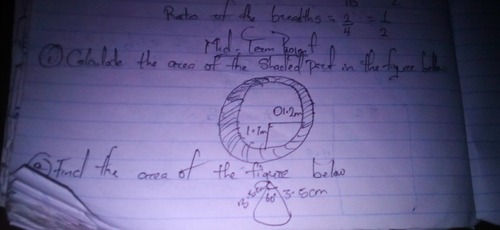 Ratio of the breadths = 2/4 = 1/2
Mid-Term Project
① Calculate the area of the shaded part in the figure below
1.2m
1.1m
② Find the area of the figure below
3.5cm 60° 3.5cm